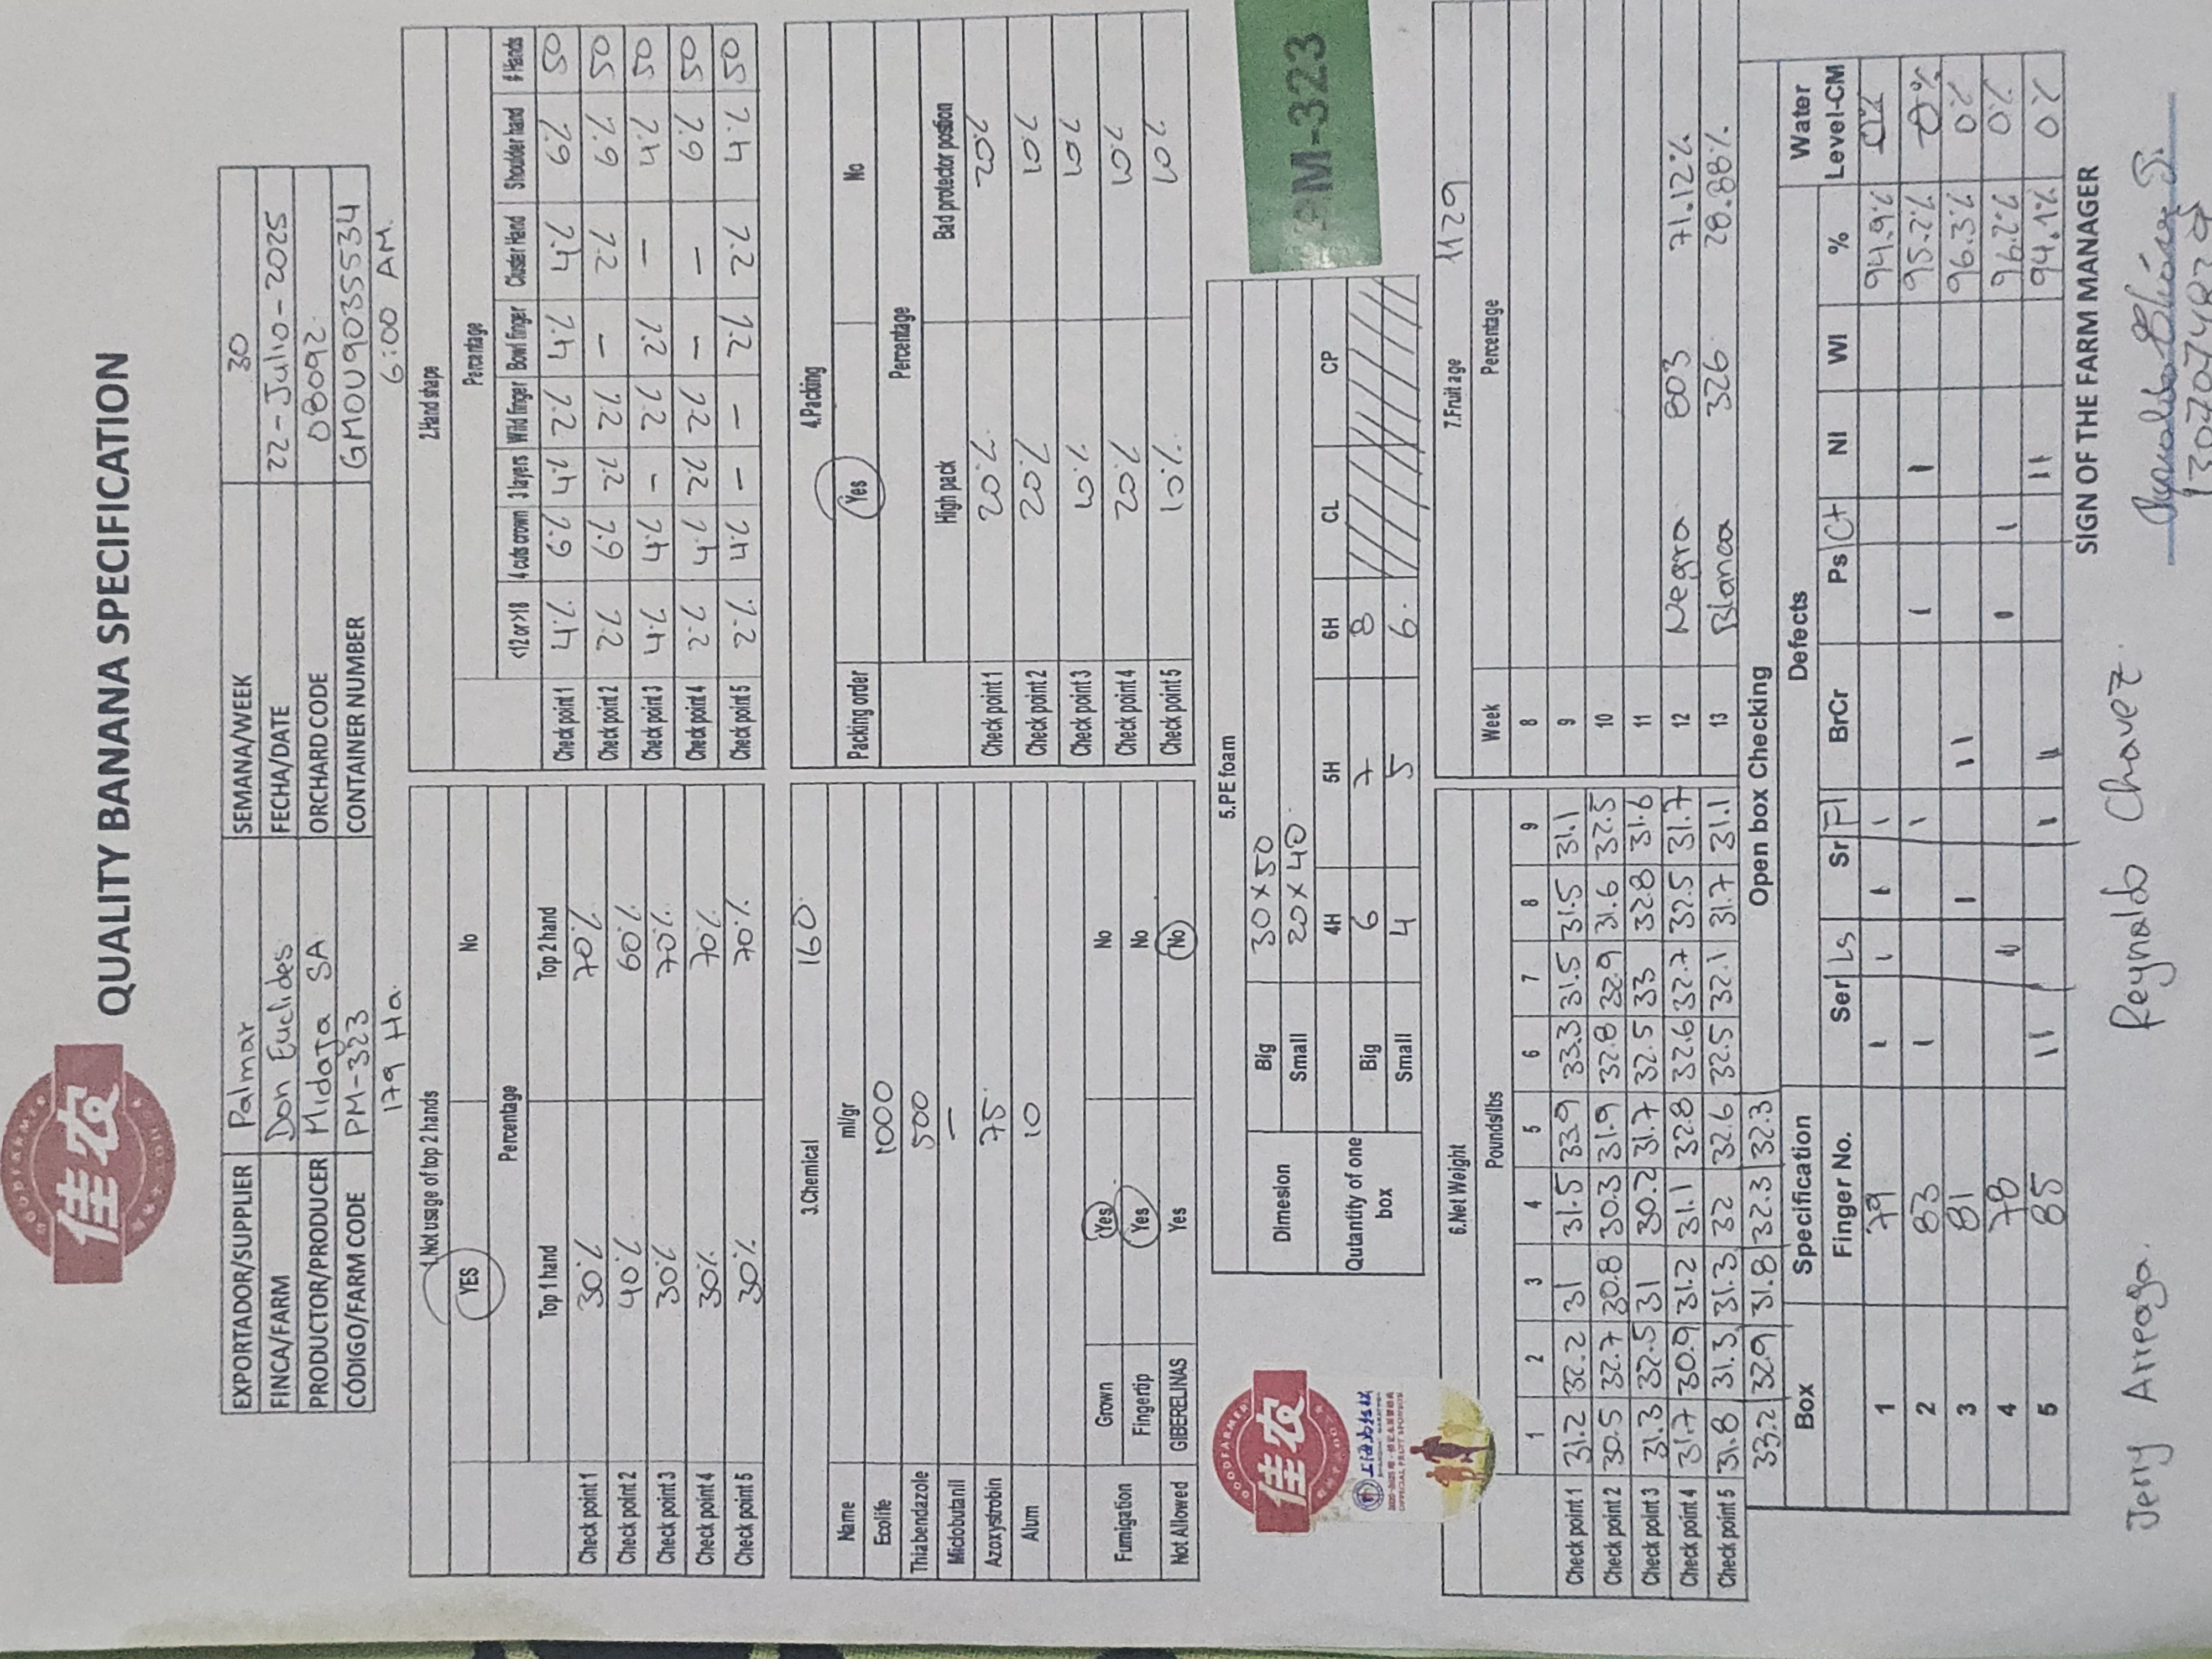 GOODFARMER
佳农
QUALITY BANANA SPECIFICATION
EXPORTADOR/SUPPLIER Palmar SEMANA/WEEK 30
FINCA/FARM Don Euclides FECHA/DATE 22-Julio-2025
PRODUCTOR/PRODUCER Midaja SA. ORCHARD CODE 08092
CÓDIGO/FARM CODE PM-323 CONTAINER NUMBER GMOU9035534
179 Ha. 6:00 AM.
1.Not usage of top 2 hands
YES No
Percentage
Top 1 hand Top 2 hand
Check point 1 30% 70%
Check point 2 40% 60%
Check point 3 30% 70%
Check point 4 30% 70%
Check point 5 30% 70%
2.Hand shape
Percentage
<12 or>18 4 cuts crown 3 layers Wild finger Bowl finger Cluster Hand Shoulder hand # Hands
Check point 1 4% 6% 4% 2% 4% 4% 6% 50
Check point 2 2% 6% 2% 2% - 2% 6% 50
Check point 3 4% 4% - 2% 2% - 4% 50
Check point 4 2% 4% 2% 2% - - 6% 50
Check point 5 2% 4% - - 2% 2% 4% 50
3.Chemical 160
Name ml/gr
Ecolife 1000
Thiabendazole 500
Miclobutanil -
Azoxystrobin 75
Alum 10
Fumigation Grown Yes No
Fingertip Yes No
Not Allowed GIBERELINAS Yes No
4.Packing
Packing order Yes No
Percentage
High pack Bad protector postion
Check point 1 20% 20%
Check point 2 20% 10%
Check point 3 10% 10%
Check point 4 20% 10%
Check point 5 10% 10%
GOODFARMER
佳农
SHANGHAI MARATHON
OFFICIAL FRUIT SPONSOR
5.PE foam
Dimesion Big 30x50
Small 20x40
Qutantity of one box 4H 5H 6H CL CP
Big 6 7 8
Small 4 5 6
PM-323
6.Net Weight
Pounds/lbs
1 2 3 4 5 6 7 8 9
Check point 1 31.2 32.2 31 31.5 33.9 33.3 31.5 31.5 31.1
Check point 2 30.5 32.7 30.8 30.3 31.9 32.8 32.9 31.6 32.5
Check point 3 31.3 32.5 31 30.2 31.7 32.5 33 32.8 31.6
Check point 4 31.7 30.9 31.2 31.1 32.8 32.6 32.7 32.5 31.7
Check point 5 31.8 31.3 31.3 32 32.6 32.5 32.1 31.7 31.1
33.2 32.9 31.8 32.3 32.3
7.Fruit age 1129
Week Percentage
8
9
10
11
12 Negra 803 71.12%
13 Blanca 326 28.88%
Open box Checking
Box Specification Defects Water
Finger No. Ser Ls Sr Fl BrCr Ps Ct NI WI % Level-CM
1 79 I I I I 94.9% 0%
2 83 I I I I 95.2% 0%
3 81 I II 96.3% 0%
4 78 I I I 96.2% 0%
5 85 II I I II 94.1% 0%
SIGN OF THE FARM MANAGER
Jerry Arreaga. Reynaldo Chavez.